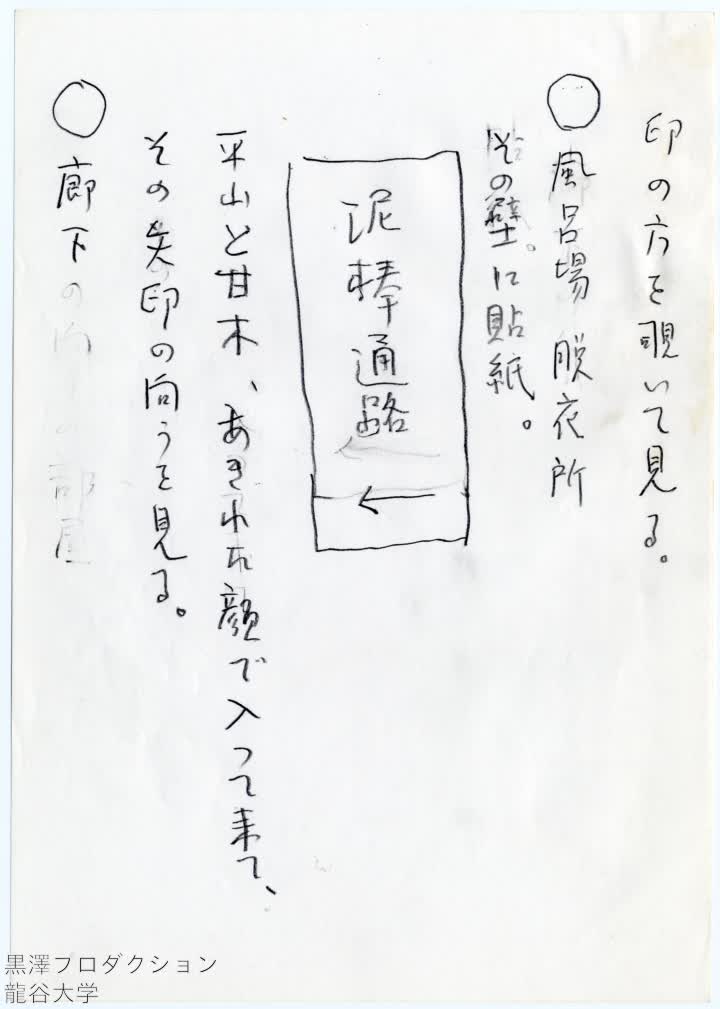 印の方を覗いて見る。
○風呂場 脱衣所
その壁。に貼紙。
泥棒通路
←
平山と甘木、あきれた顔で入って来て、
その矢印の向うを見る。
○廊下の向
部屋
黒澤プロダクション
龍谷大学